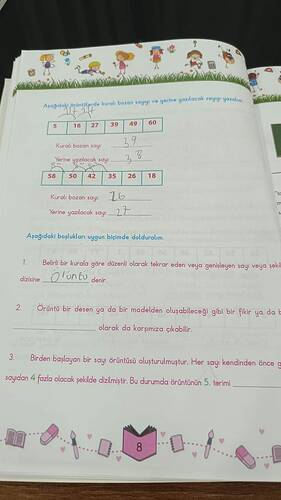 Aşağıdaki örüntülerde kuralı bozan sayıyı ve yerine yazılacak sayıyı yazalım.
5 16 27 39 49 60
Kuralı bozan sayı: 39
Yerine yazılacak sayı: 38
58 50 42 35 26 18
Kuralı bozan sayı: 26
Yerine yazılacak sayı: 27
Aşağıdaki boşlukları uygun biçimde dolduralım.
1. Belirli bir kurala göre düzenli olarak tekrar eden veya genişleyen sayı veya şekil
dizisine Örüntü denir.
2. Örüntü bir desen ya da bir modelden oluşabileceği gibi bir fikir ya da
olarak da karşımıza çıkabilir.
3. Birden başlayan bir sayı örüntüsü oluşturulmuştur. Her sayı kendinden önce
sayıdan 4 fazla olacak şekilde dizilmiştir. Bu durumda örüntünün 5. terimi
8